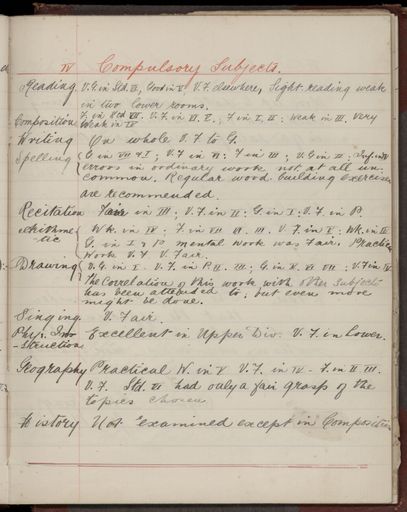 IV Compulsory Subjects.
Reading. V.G. in Std. VI, Good in V. V.F. elsewhere, Sight reading weak
in two lower rooms.
Composition F. in Std VII. V.F. in VI. V. ; F in I, II : Weak in III. Very
Weak in IV
Writing On whole V.F to G.
Spelling G in VII & I ; V.F in VI : F in III ; V.G in II ;
errors in ordinary work not at all un-
common. Regular word building exercises
are recommended.
Recitation Fair in III ; V.F. in II : G. in I : V.F. in P.
Arithme-
tic Wk. in IV : F in VII VI. III. V.F in V : Wk. in II
G. in I & P mental work was Fair. Practical
Work V.F V. Fair.
Drawing V.G. in I. V.F. in P. II. III ; G. in V. VI VII : V.F in IV
The correlation of this work with other subjects
has been attended to, but even more
might be done.
Singing V. Fair.
Phy. Ins-
truction Excellent in Upper Div. V.F. in Lower.
Geography Practical W. in V V.F. in IV - F. in II III.
V.F. Std. VI had only a fair grasp of the
topics chosen
History Not examined except in Composition